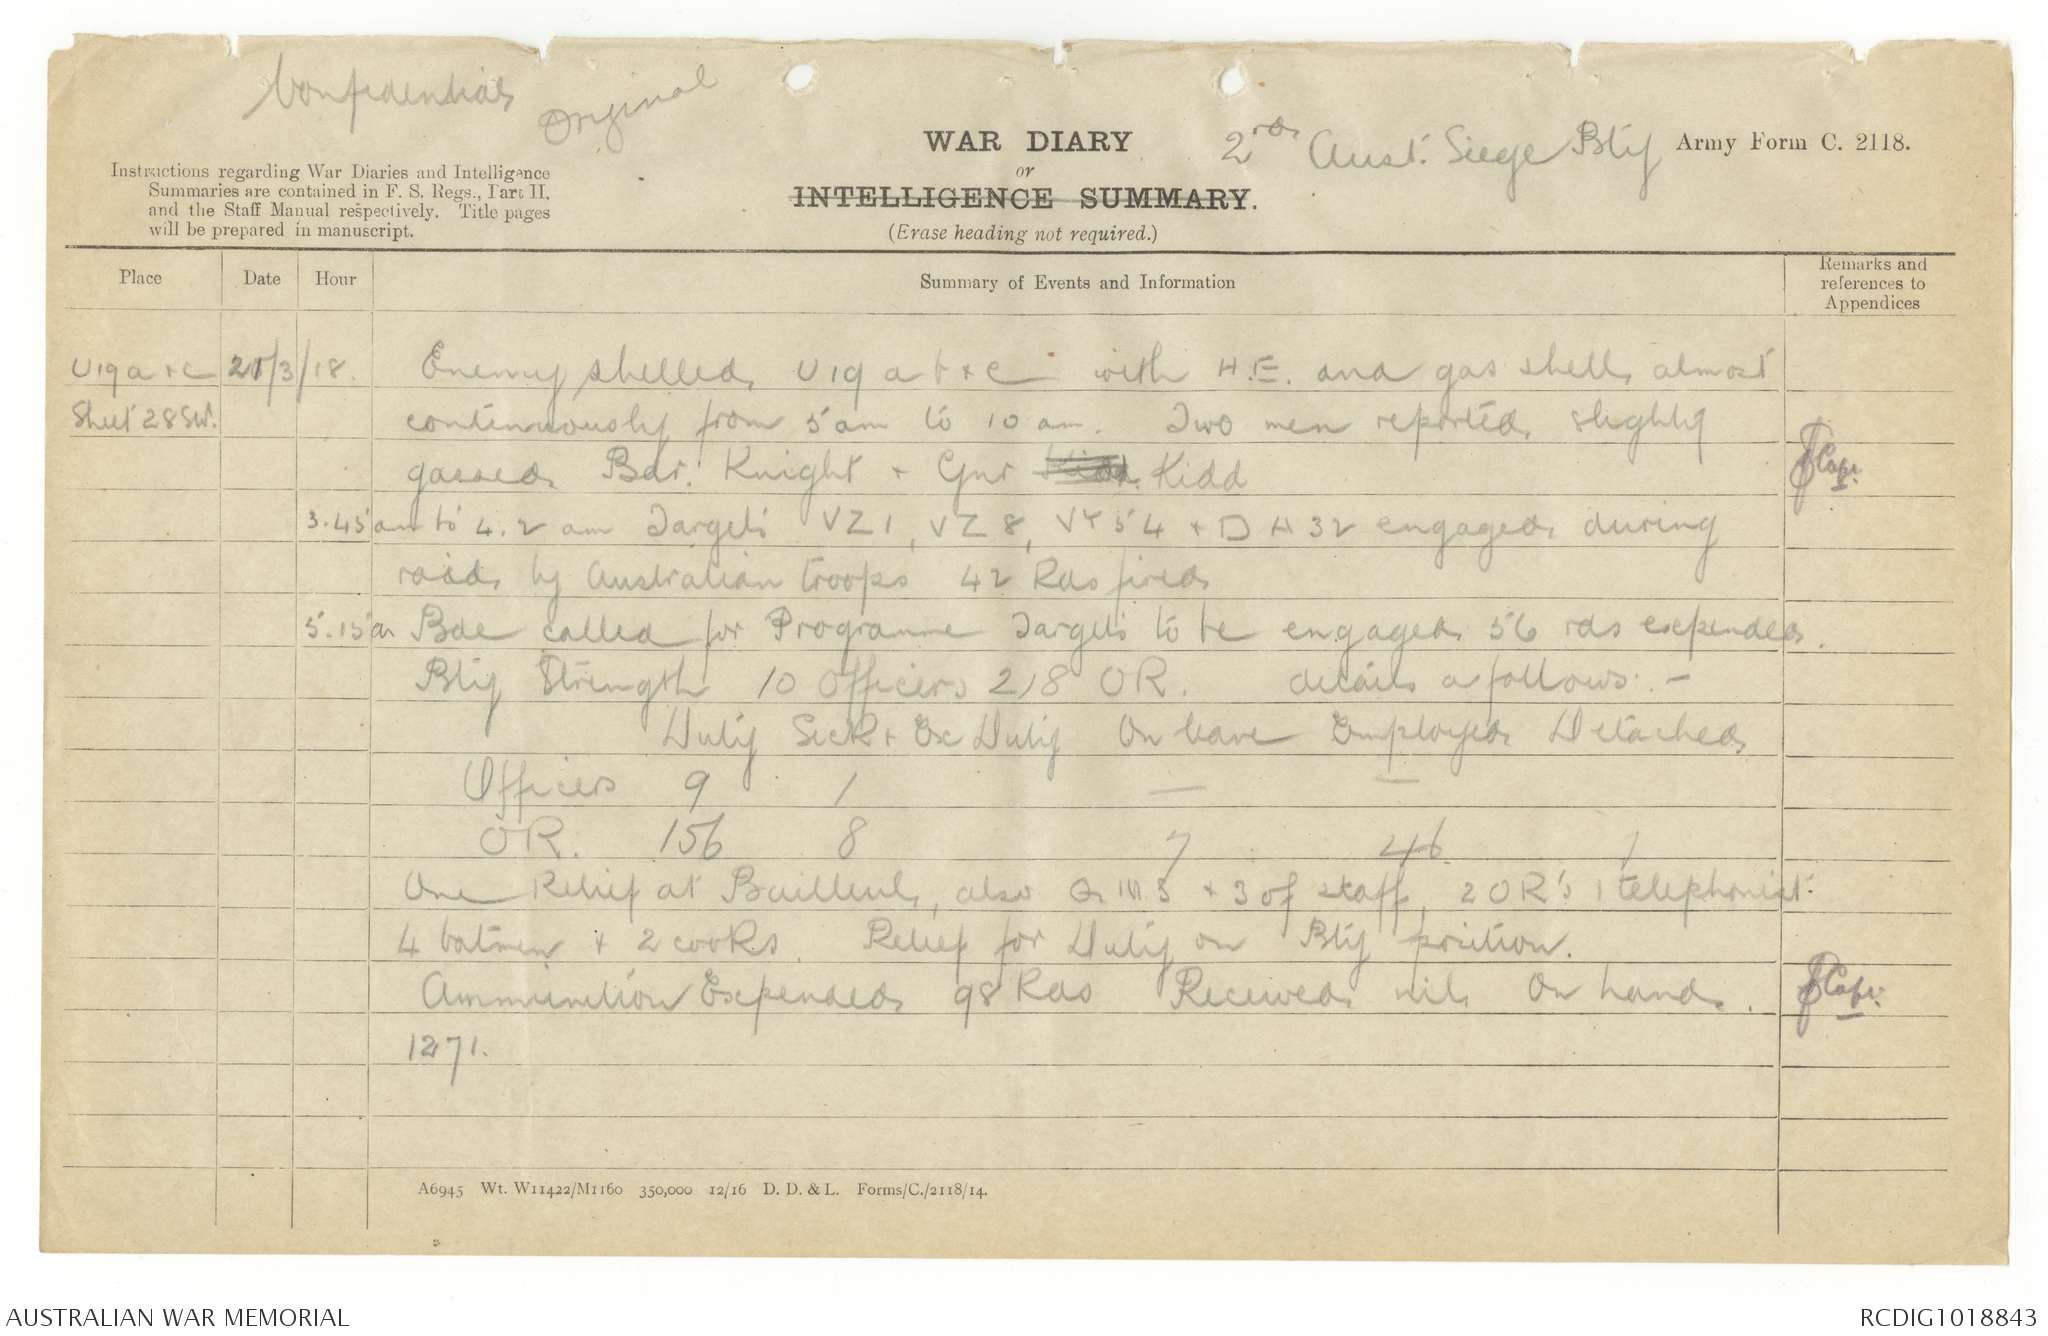 Confidential
Original
WAR DIARY
or
INTELLIGENCE SUMMARY.
(Erase heading not required.)
2nd Aust. Siege Bty
Army Form C. 2118.
Instructions regarding War Diaries and Intelligence
Summaries are contained in F. S. Regs., Part II.
and the Staff Manual respectively. Title pages
will be prepared in manuscript.
Place Date Hour Summary of Events and Information Remarks and
references to
Appendices
U19 a + c 21/3/18. Enemy shelled U19 a b + c with H.E. and gas shell almost
Sheet 28 SW. continuously from 5am to 10 am. Two men reported slightly
gassed Bdr. Knight + Gnr Kidd Kidd Capt.
3.45 am to 4.2 am Targets VZ1, VZ8, VY54 + DH32 engaged during
raid by Australian troops 42 Rds fired
5.15 am Bde called for Programme Targets to be engaged 56 rds expended.
Bty Strength 10 Officers 218 OR. details as follows. -
Duty Sick + Ex Duty On leave Employed Detached
Officers 9 1 — —
OR. 156 8 7 46 1
One Relief at Bailleul, also Q.M.S + 3 of staff, 2 OR's 1 telephonist
4 batmen + 2 cooks. Relief for Duty on Bty position.
Ammunition Expended 98 Rds Received nil On hand. Capt.
1271.
A6945 Wt. W11422/M1160 350,000 12/16 D. D. & L. Forms/C./2118/14.
AUSTRALIAN WAR MEMORIAL
RCDIG1018843